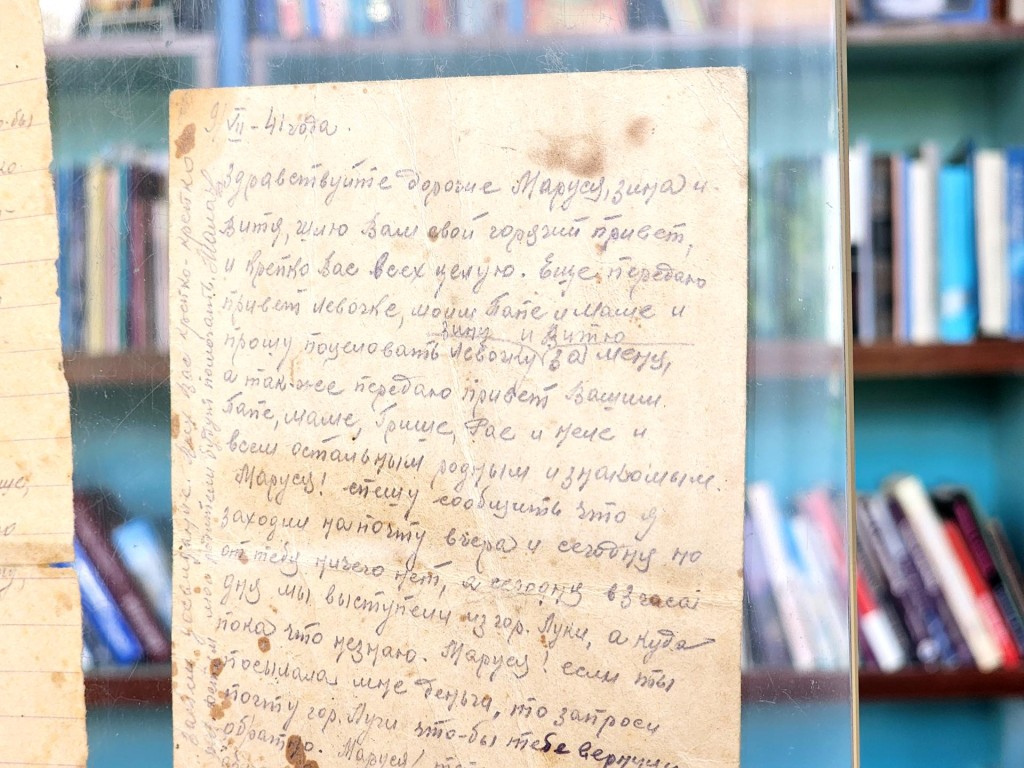 VII - 41 года.
Здравствуйте дорогие Маруся, Зина и
Витя, шлю Вам свой горячий привет,
и крепко Вас всех целую. Еще передаю
привет Левочке, моим Папе и Маме и
Зину и Витю
прошу поцеловать Левочку за меня,
а так-же передаю привет Вашим
Папе, маме, Грише, Рае и неле и
всем остальным родным и знакомым.
Маруся! спешу сообщить что я
заходил на почту вчера и сегодня но
от тебя ничего нет, а сегодня в 3 часа
дня мы выступели из гор. Луки, а куда
пока что незнаю. Маруся! если ты
посылала мне деньги, то запроси
почту гор. Луги что-бы тебе вернули
обратно. Маруся!
Вас крепко-крепко